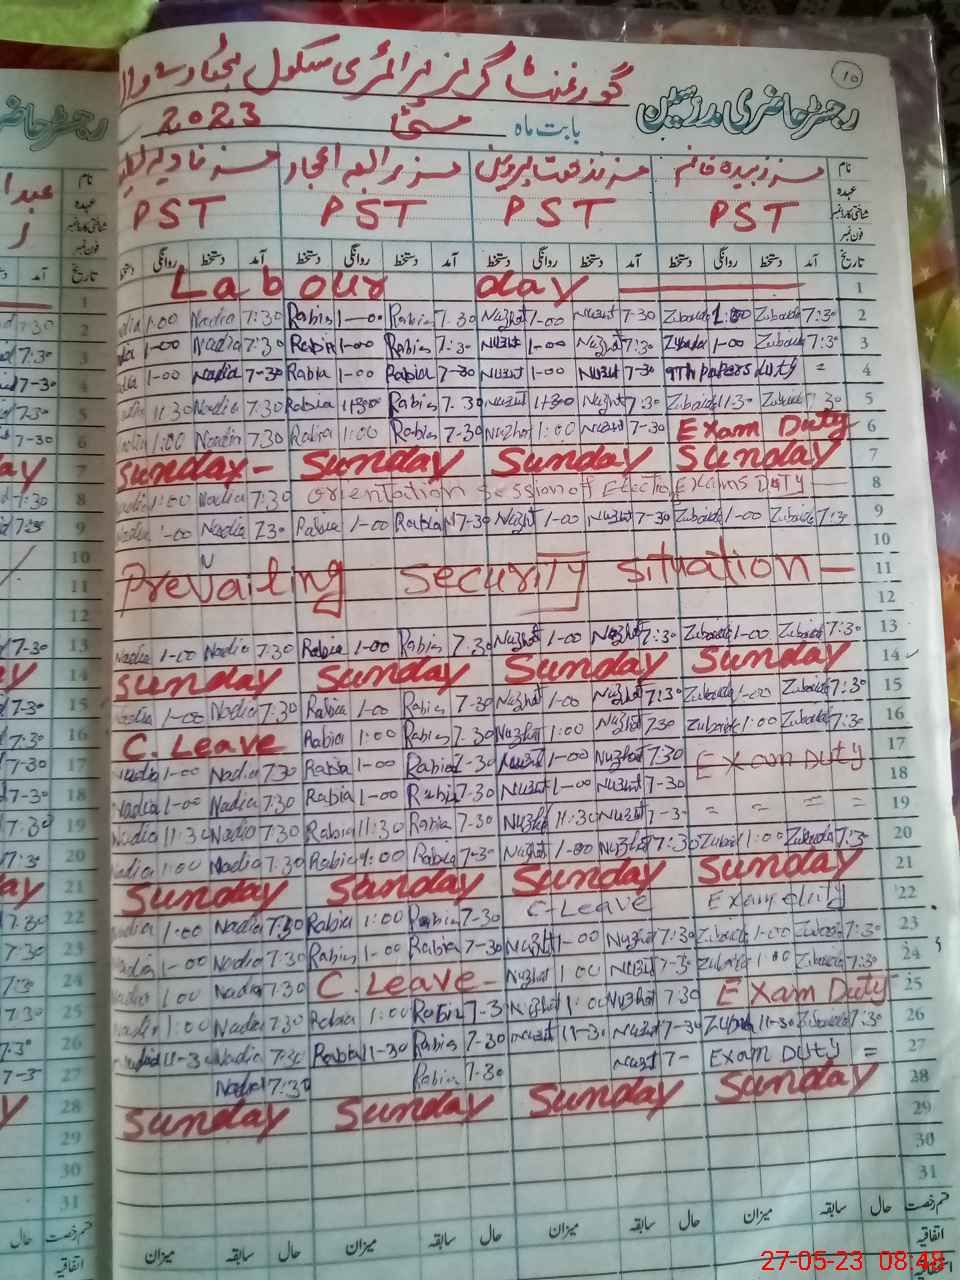 10
رجسٹر حاضری مدرسین
گورنمنٹ گرلز پرائمری سکول
بابت ماہ مئی 2023
نام مسز زبیدہ خانم مسز نزہت پروین مسز رابعہ اعجاز مسز نادیہ
عہدہ PST PST PST PST
شناختی کارڈ نمبر
فون نمبر
تاریخ آمد دستخط روانگی دستخط آمد دستخط روانگی دستخط آمد دستخط روانگی دستخط آمد دستخط روانگی دستخط
Labour day 1
1:00 Nadia 7:30 Rabia 1-00 Rabia 7.30 Nuzhat 1-00 Nuzhat 7-30 Zubaida 1:00 Zubaida 7:30 2
1-00 Nadia 7:30 Rabia 1-00 Rabia 7:30 Nuzhat 1-00 Nuzhat 7:30 Zubaida 1-00 Zubaida 7:30 3
1-00 Nadia 7-30 Rabia 1-00 Rabia 7-30 Nuzhat 1-00 Nuzhat 7-30 9th papers duty = 4
11:30 Nadia 7:30 Rabia 11:30 Rabia 7.30 Nuzhat 11:30 Nuzhat 7:30 Zubaida 11:30 Zubaida 7:30 5
1:00 Nadia 7:30 Rabia 1:00 Rabia 7-30 Nuzhat 1:00 Nuzhat 7-30 Exam Duty 6
Sunday - Sunday Sunday Sunday 7
Nadia 1:00 Nadia 7:30 Orientation Session of Election Exams Duty 8
Nadia 1-00 Nadia 7:30 Rabia 1-00 Rabia 7-30 Nuzhat 1-00 Nuzhat 7-30 Zubaida 1-00 Zubaida 7:30 9
10
Prevailing Security Situation — 11
12
Nadia 1-00 Nadia 7:30 Rabia 1-00 Rabia 7.30 Nuzhat 1-00 Nuzhat 7:30 Zubaida 1-00 Zubaida 7:30 13
Sunday Sunday Sunday Sunday 14
Nadia 1-00 Nadia 7:30 Rabia 1-00 Rabia 7-30 Nuzhat 1-00 Nuzhat 7:30 Zubaida 1-00 Zubaida 7:30 15
C. Leave Rabia 1:00 Rabia 7.30 Nuzhat 1:00 Nuzhat 7:30 Zubaida 1:00 Zubaida 7:30 16
Nadia 1-00 Nadia 7:30 Rabia 1-00 Rabia 7-30 Nuzhat 1-00 Nuzhat 7:30 Exam Duty 17
Nadia 1-00 Nadia 7:30 Rabia 1-00 Rabia 7-30 Nuzhat 1-00 Nuzhat 7-30 18
Nadia 11:30 Nadia 7:30 Rabia 11:30 Rabia 7-30 Nuzhat 11:30 Nuzhat 7-30 = = = = 19
Nadia 1:00 Nadia 7:30 Rabia 1:00 Rabia 7-30 Nuzhat 1-00 Nuzhat 7:30 Zubaida 1:00 Zubaida 7:30 20
Sunday Sunday Sunday Sunday 21
Nadia 1:00 Nadia 7:30 Rabia 1:00 Rabia 7-30 C-Leave Exam duty 22
Nadia 1-00 Nadia 7:30 Rabia 1-00 Rabia 7-30 Nuzhat 1-00 Nuzhat 7:30 Zubaida 1-00 Zubaida 7:30 23
Nadia 1:00 Nadia 7:30 C. Leave - Nuzhat 1:00 Nuzhat 7-30 Zubaida 1:00 Zubaida 7:30 24
Nadia 1:00 Nadia 7:30 Rabia 1:00 Rabia 7-30 Nuzhat 1:00 Nuzhat 7:30 Exam Duty 25
Nadia 11-30 Nadia 7:30 Rabia 11-30 Rabia 7-30 Nuzhat 11-30 Nuzhat 7-30 Zubaida 11-30 Zubaida 7:30 26
Nadia 7:30 Rabia 7-30 Nuzhat 7- Exam Duty = 27
Sunday Sunday Sunday Sunday 28
29
30
31
قسم رخصت حال سابقہ میزان حال سابقہ میزان حال سابقہ میزان حال سابقہ میزان
اتفاقیہ
27-05-23 08:48